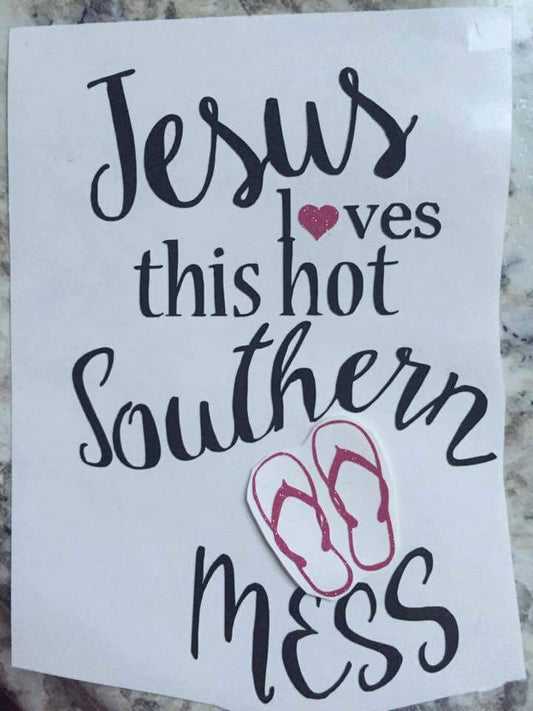 Jesus
l♥ves
this hot
Southern
MESS